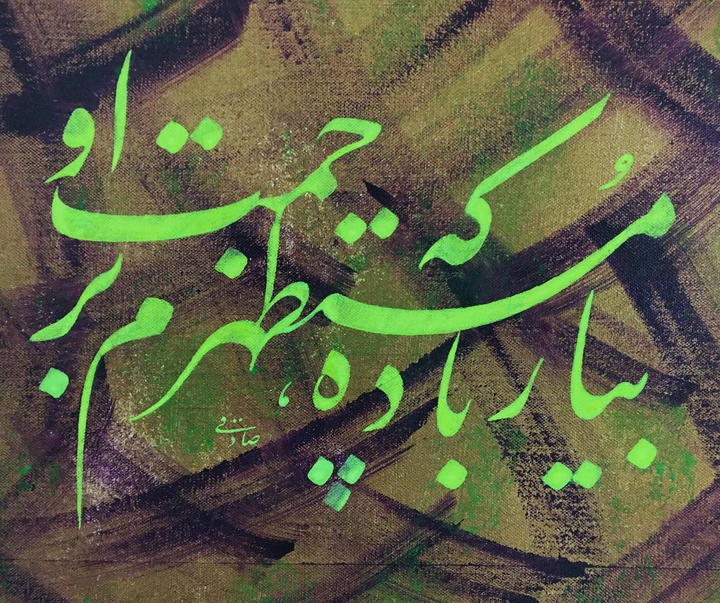 بیار باده که مُستظهرم برحمت او
صادقی